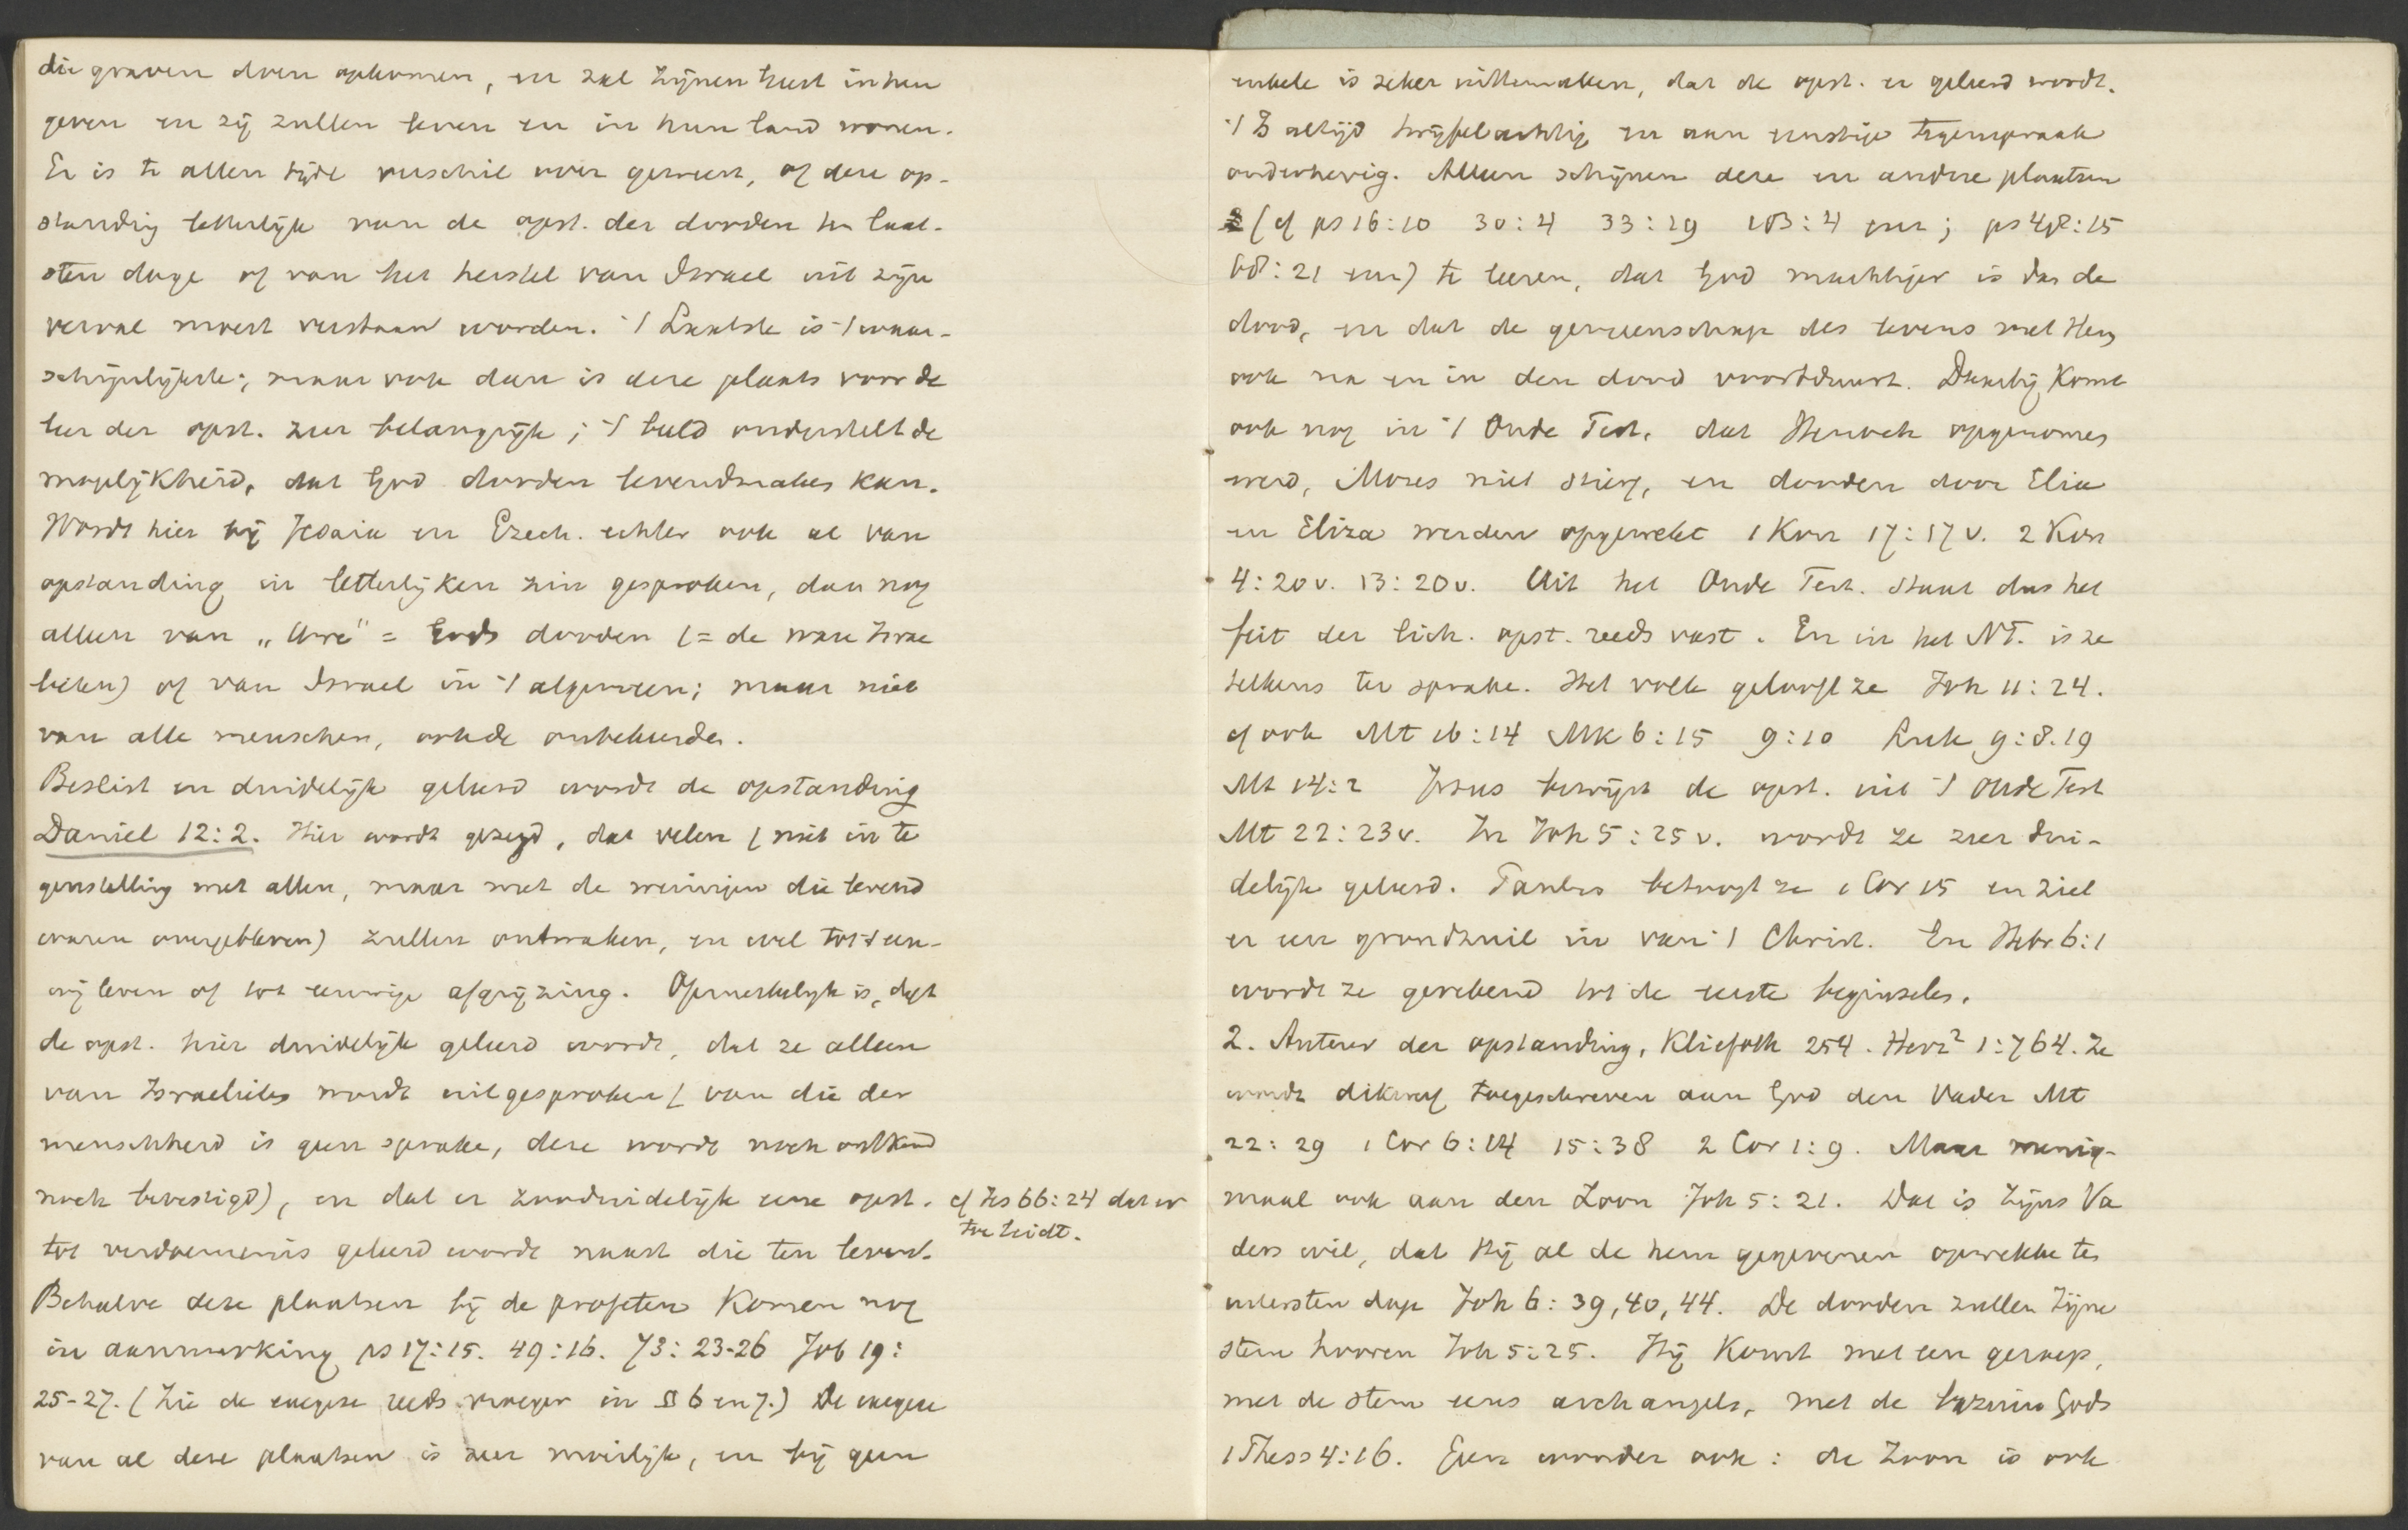 die graven doen opkomen, en zal Zijnen Geest in hen
geven en zij zullen leven en in hun land wonen.
Er is te allen tijde verschil over geweest, of deze op-
standing letterlijk van de opst. der dooden ten laat-
sten dage of van het herstel van Israel uit zijn
verval moest verstaan worden. 't Laatste is 't waar-
schijnlijkste; maar ook dan is deze plaats voor de
leer der opst. zeer belangrijk; 't beeld onderstelt de
mogelijkheid, dat God dooden levendmaken kan.
Wordt hier bij Jesaia en Ezech. echter ook al van
opstanding in letterlijken zin gesproken, dan nog
alleen van „Uwe” = Gods dooden (= de ware Israe
lieten) of van Israel in 't algemeen; maar niet
van alle menschen, ook de onbekeerden.
Beslist en duidelijk geleerd wordt de opstanding
Daniel 12:2. Hier wordt gezegd, dat velen (niet in te
genstelling met allen, maar met de weinigen die levend
waren overgebleven) zullen ontwaken, en wel tot 't eeu-
wig leven of tot eeuwige afgrijzing. Opmerkelijk is, dat
de opst. hier duidelijk geleerd wordt, dat ze alleen
van Israelieten wordt uitgesproken (van die der
menschheid is geen sprake, deze wordt noch ontkend
noch bevestigd), en dat er zoo duidelijk eene opst. cf Jes 66:24 dat er
toe leidt.
tot verdoemenis geleerd wordt naast die ten leven.
Behalve deze plaatsen bij de profeten komen nog
in aanmerking ps 17:15. 49:16. 73:23-26 Job 19:
25-27. (Zie de exegese reeds vroeger in § 6 en 7.) De exegese
van al deze plaatsen is zeer moeilijk, en bij geen
enkele is zeker uittemaken, dat de opst. er geleerd wordt.
't Is altijd twijfelachtig en aan ernstige tegenspraak
onderhevig. Alleen schijnen deze en andere plaatsen
(cf ps 16:10 30:4 33:19 103:4 enz; ps 48:15
68:21 enz) te leeren, dat God machtiger is dan de
dood, en dat de gemeenschap des levens met Hem
ook na en in den dood voortduurt. Daarbij komt
ook nog in 't Oude Test. dat Henoch opgenomen
werd, Mozes niet stierf, en dooden door Elia
en Eliza werden opgewekt 1 Kon 17:17 v. 2 Kon
4:20 v. 13:20 v. Uit het Oude Test. staat dus het
feit der lich. opst. reeds vast. En in het NT. is ze
telkens ter sprake. Het volk gelooft ze Joh 11:24.
cf ook Mt 16:14 Mk 6:15 9:10 Luk 9:8.19
Mt 14:2 Jezus bewijst de opst. uit 't Oude Test
Mt 22:23 v. In Joh 5:25 v. wordt ze zeer dui-
delijk geleerd. Paulus betoogt ze 1 Cor 15 en ziet
er een grondzuil in van 't Christ. En Hebr 6:1
wordt ze gerekend tot de eerste beginselen.
2. Auteur der opstanding, Kliefoth 254. Herz² 1:764. Ze
wordt dikwerf toegeschreven aan God den Vader Mt
22:29 1 Cor 6:14 15:38 2 Cor 1:9. Maar menig-
maal ook aan den Zoon Joh 5:21. Dat is Zijns Va
ders wil, dat Hij al de hem gegevenen opwekke ten
uitersten dage Joh 6:39,40,44. De dooden zullen Zijne
stem hooren Joh 5:25. Hij komt met een geroep,
met de stem eens archangels, met de bazuin Gods
1 Thess 4:16. Geen wonder ook: de Zoon is ook